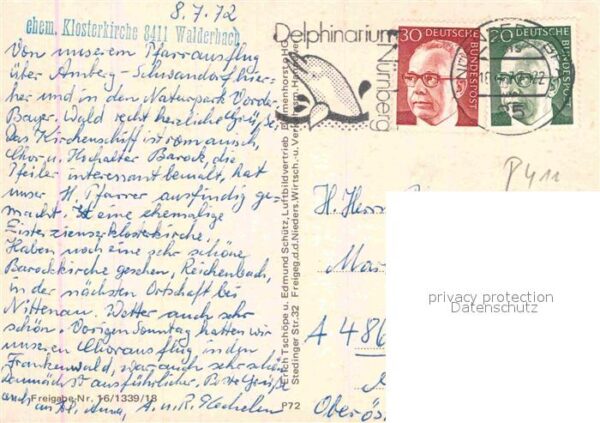 8.7.72
ehem. Klosterkirche 8411 Walderbach
Von unserem Pfarrausflug
über Amberg - Schwandorf hier=
her und in den Naturpark Vorder
Bayer. Wald recht herzliche Grüße,
Das Kirchenschiff ist romanisch,
Chor u. Hochaltar Barock, die
Pfeiler interessant bemalt, hat
unser H. Pfarrer ausfindig ge-
macht. Ist eine ehemalige
Zisterzienserklosterkirche,
Haben noch eine sehr schöne
Barockkirche gesehen, Reichenbach,
in der nächsten Ortschaft bei
Nittenau. Wetter auch sehr
schön. Vorigen Sonntag hatten wir
unseren Chorausflug in den
Frankenwald, war auch sehr schön
Demnächst ausführlicher. Beste Grüße
auch an Anna, A. u. R.
Freigabe Nr. 16/1339/18
P72
Erich Tschöpe u. Edmund Schütz, Luftbildvertrieb, Delmenhorst
Stedinger Str.32 Freigeg.d.d.Nieders.Wirtsch.-u.Verk. Hannover
Delphinarium
Nürnberg
30
DEUTSCHE
BUNDESPOST
20
DEUTSCHE
BUNDESPOST
P411
H. Herrn
A 486
Oberös
privacy protection
Datenschutz